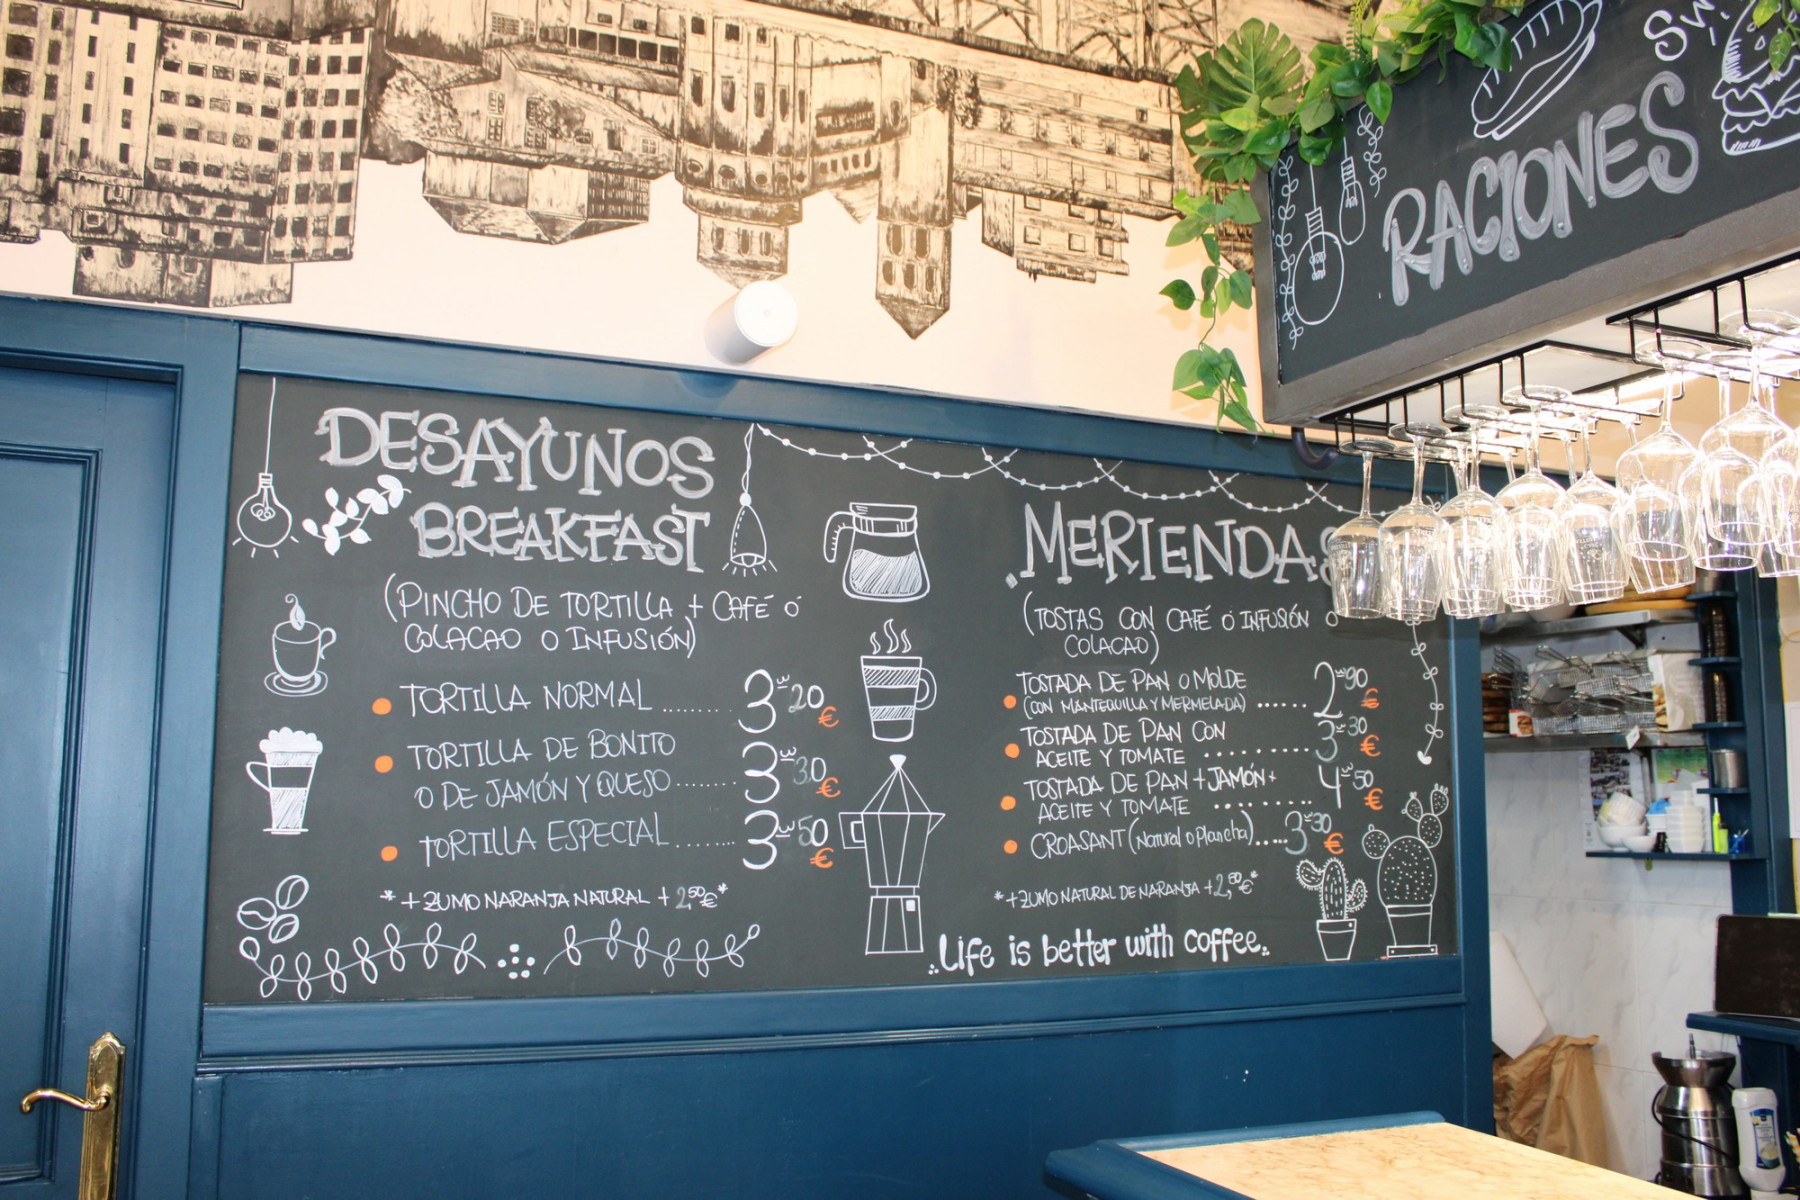 DESAYUNOS
BREAKFAST
(PINCHO DE TORTILLA + CAFÉ Ó
COLACAO O INFUSIÓN)
TORTILLA NORMAL ........ 3'20 €
TORTILLA DE BONITO
O DE JAMÓN Y QUESO ........ 3'30 €
TORTILLA ESPECIAL ........ 3'50 €
* + ZUMO NARANJA NATURAL + 2,50€ *
MERIENDAS
(TOSTAS CON CAFÉ Ó INFUSIÓN O
COLACAO)
TOSTADA DE PAN O MOLDE
(CON MANTEQUILLA Y MERMELADA) ...... 2'90 €
TOSTADA DE PAN CON
ACEITE Y TOMATE .......... 3'30 €
TOSTADA DE PAN + JAMÓN +
ACEITE Y TOMATE .......... 4'50 €
CROASANT (Natural o Plancha)..... 3'30 €
* + ZUMO NATURAL DE NARANJA + 2,50€ *
Life is better with coffee
RACIONES